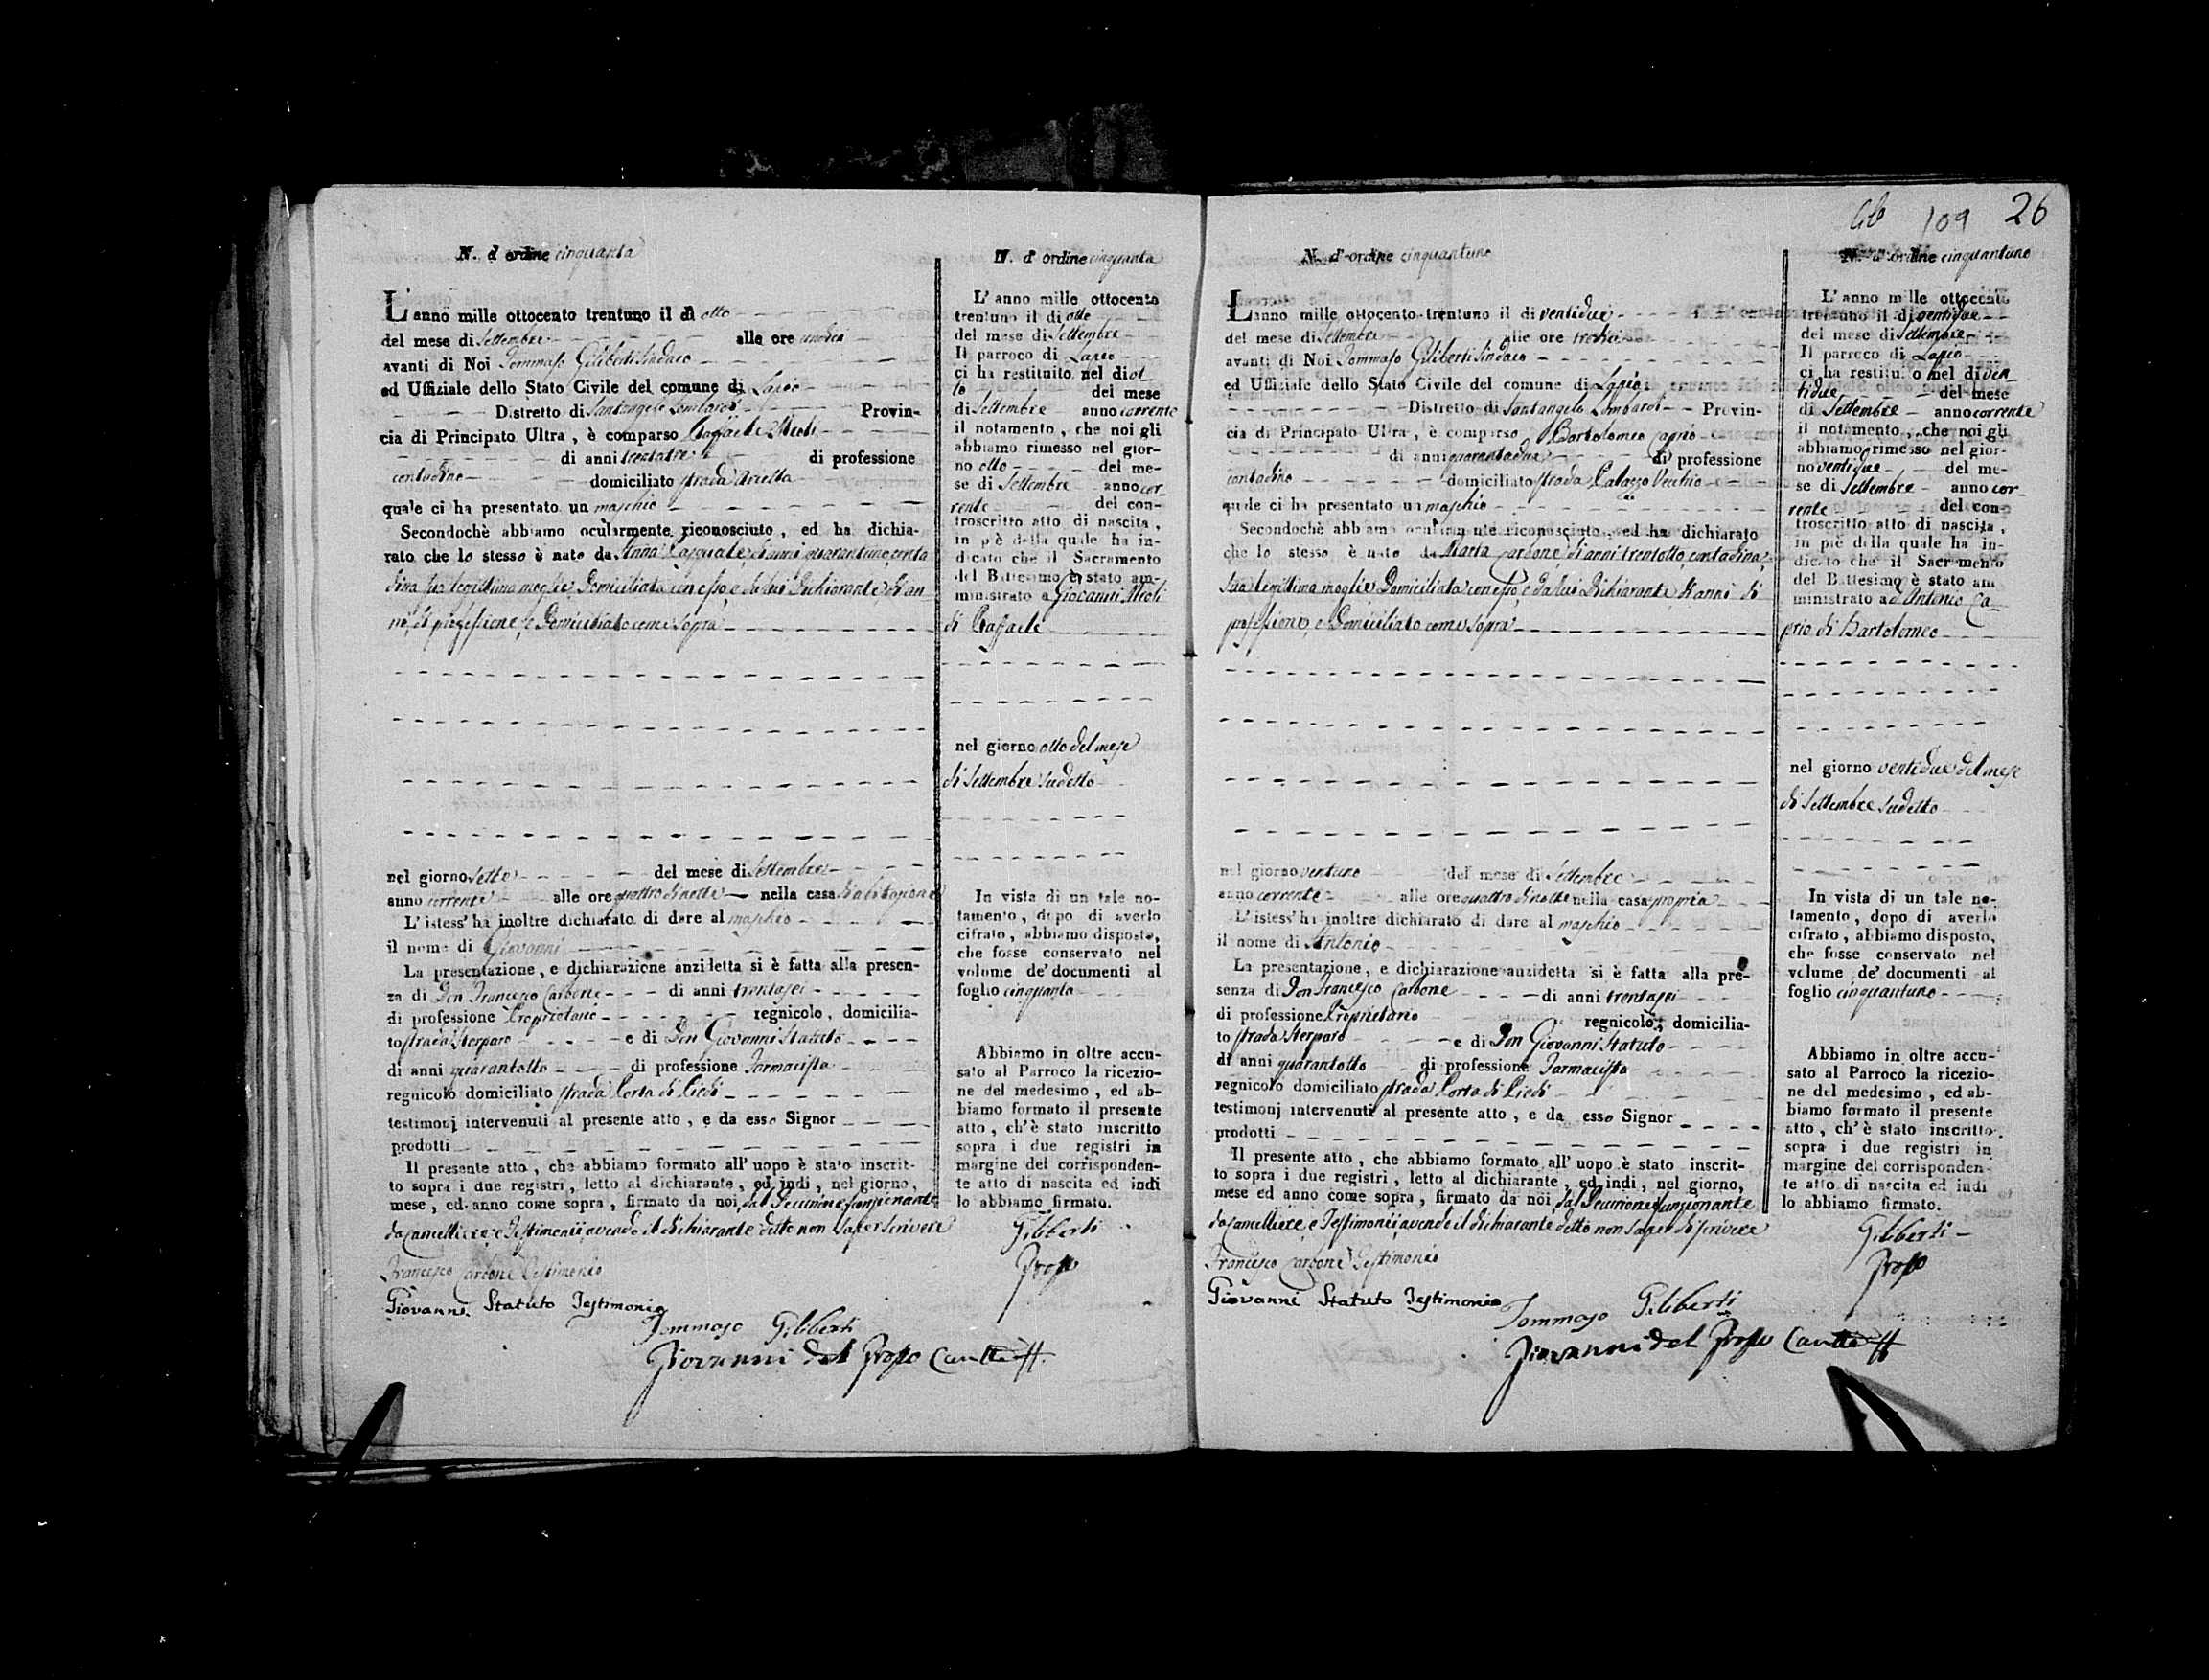 N. d'ordine cinquanta
L'anno mille ottocento trentuno il dì otto
del mese di Settembre alle ore undici
avanti di Noi Tommaso Giliberti Sindaco
ed Uffiziale dello Stato Civile del comune di Lapio
Distretto di Santangelo Lombardi Provin-
cia di Principato Ultra, è comparso Raffaele
di anni trentatre di professione
contadino domiciliato strada
quale ci ha presentato un maschio
Secondochè abbiamo ocularmente riconosciuto, ed ha dichia-
rato che lo stesso è nato da Anna Pasquale di anni quarantuno conta
dina sua legittima moglie Domiciliata con esso e da lui Dichiarante di an
ni, di professione, e Domiciliato come sopra
nel giorno sette del mese di Settembre
anno corrente alle ore quattro di notte nella casa di abitazione
L'istess' ha inoltre dichiarato di dare al maschio
il nome di Giovanni
La presentazione, e dichiarazione anzidetta si è fatta alla presen-
za di Don Francesco Carbone di anni trentasei
di professione Proprietario regnicolo, domicilia-
to strada Sterparo e di Don Giovanni Statuto
di anni quarantotto di professione Farmacista
regnicolo domiciliato strada Porta di Piedi
testimonj intervenuti al presente atto, e da esso Signor
prodotti
Il presente atto, che abbiamo formato all'uopo è stato inscrit-
to sopra i due registri, letto al dichiarante, ed indi, nel giorno,
mese, ed anno come sopra, firmato da noi, dal Decurione funzionante
da Cancelliere, e Testimonii avendo il dichiarante detto non saper scrivere
Francesco Carbone Testimonio
Giovanni Statuto Testimonio
Tommaso Giliberti
Giovanni del Grosso
N. d'ordine cinquanta
L'anno mille ottocento
trentuno il dì otto
del mese di Settembre
Il parroco di Lapio
ci ha restituito nel dì ot-
to del mese
di Settembre anno corrente
il notamento, che noi gli
abbiamo rimesso nel gior-
no otto del me-
se di Settembre anno cor-
rente del con-
troscritto atto di nascita,
in piè della quale ha in-
dicato che il Sacramento
del Battesimo è stato am-
ministrato a Giovanni
di Raffaele
nel giorno otto del mese
di Settembre sudetto
In vista di un tale no-
tamento, dopo di averlo
cifrato, abbiamo disposto,
che fosse conservato nel
volume de' documenti al
foglio cinquanta
Abbiamo in oltre accu-
sato al Parroco la ricezio-
ne del medesimo, ed ab-
biamo formato il presente
atto, ch'è stato inscritto
sopra i due registri in
margine del corrisponden-
te atto di nascita ed indi
lo abbiamo firmato.
Giliberti
Grosso
Gb 109 26
N. d'ordine cinquantuno
L'anno mille ottocento trentuno il dì ventidue
del mese di Settembre alle ore tredici
avanti di Noi Tommaso Giliberti Sindaco
ed Uffiziale dello Stato Civile del comune di Lapio
Distretto di Santangelo Lombardi Provin-
cia di Principato Ultra, è comparso Bartolomeo Caprio
di anni quarantadue di professione
contadino domiciliato strada Palazzo Vecchio
quale ci ha presentato un maschio
Secondochè abbiamo ocularmente riconosciuto, ed ha dichiarato
che lo stesso è nato da Maria Carbone, di anni trentotto, contadina,
sua legittima moglie Domiciliata con esso, e da lui Dichiarante di anni di
professione, e Domiciliato come sopra
nel giorno ventuno del mese di Settembre
anno corrente alle ore quattro di notte nella casa propria
L'istess' ha inoltre dichiarato di dare al maschio
il nome di Antonio
La presentazione, e dichiarazione anzidetta si è fatta alla pre-
senza di Don Francesco Carbone di anni trentasei
di professione Proprietario regnicolo, domicilia-
to strada Sterparo e di Don Giovanni Statuto
di anni quarantotto di professione Farmacista
regnicolo domiciliato strada Porta di Piedi
testimonj intervenuti al presente atto, e da esso Signor
prodotti
Il presente atto, che abbiamo formato all'uopo è stato inscrit-
to sopra i due registri, letto al dichiarante, ed indi, nel giorno,
mese ed anno come sopra, firmato da noi, dal Decurione funzionante
da Cancelliere, e Testimonii avendo il dichiarante detto non saper di scrivere
Francesco Carbone Testimonio
Giovanni Statuto Testimonio
Tommaso Giliberti
Giovanni del Grosso
N. d'ordine cinquantuno
L'anno mille ottocento
trentuno il dì ventidue
del mese di Settembre
Il parroco di Lapio
ci ha restituito nel dì ven-
tidue del mese
di Settembre anno corrente
il notamento, che noi gli
abbiamo rimesso nel gior-
no ventidue del me-
se di Settembre anno cor-
rente del con-
troscritto atto di nascita,
in piè della quale ha in-
dicato che il Sacramento
del Battesimo è stato am
ministrato ad Antonio Ca-
prio di Bartolomeo
nel giorno ventidue del mese
di Settembre sudetto
In vista di un tale no-
tamento, dopo di averlo
cifrato, abbiamo disposto,
che fosse conservato nel
volume de' documenti al
foglio cinquantuno
Abbiamo in oltre accu-
sato al Parroco la ricezio-
ne del medesimo, ed ab-
biamo formato il presente
atto, ch'è stato inscritto
sopra i due registri in
margine del corrisponden-
te atto di nascita ed indi
lo abbiamo firmato.
Giliberti
Grosso